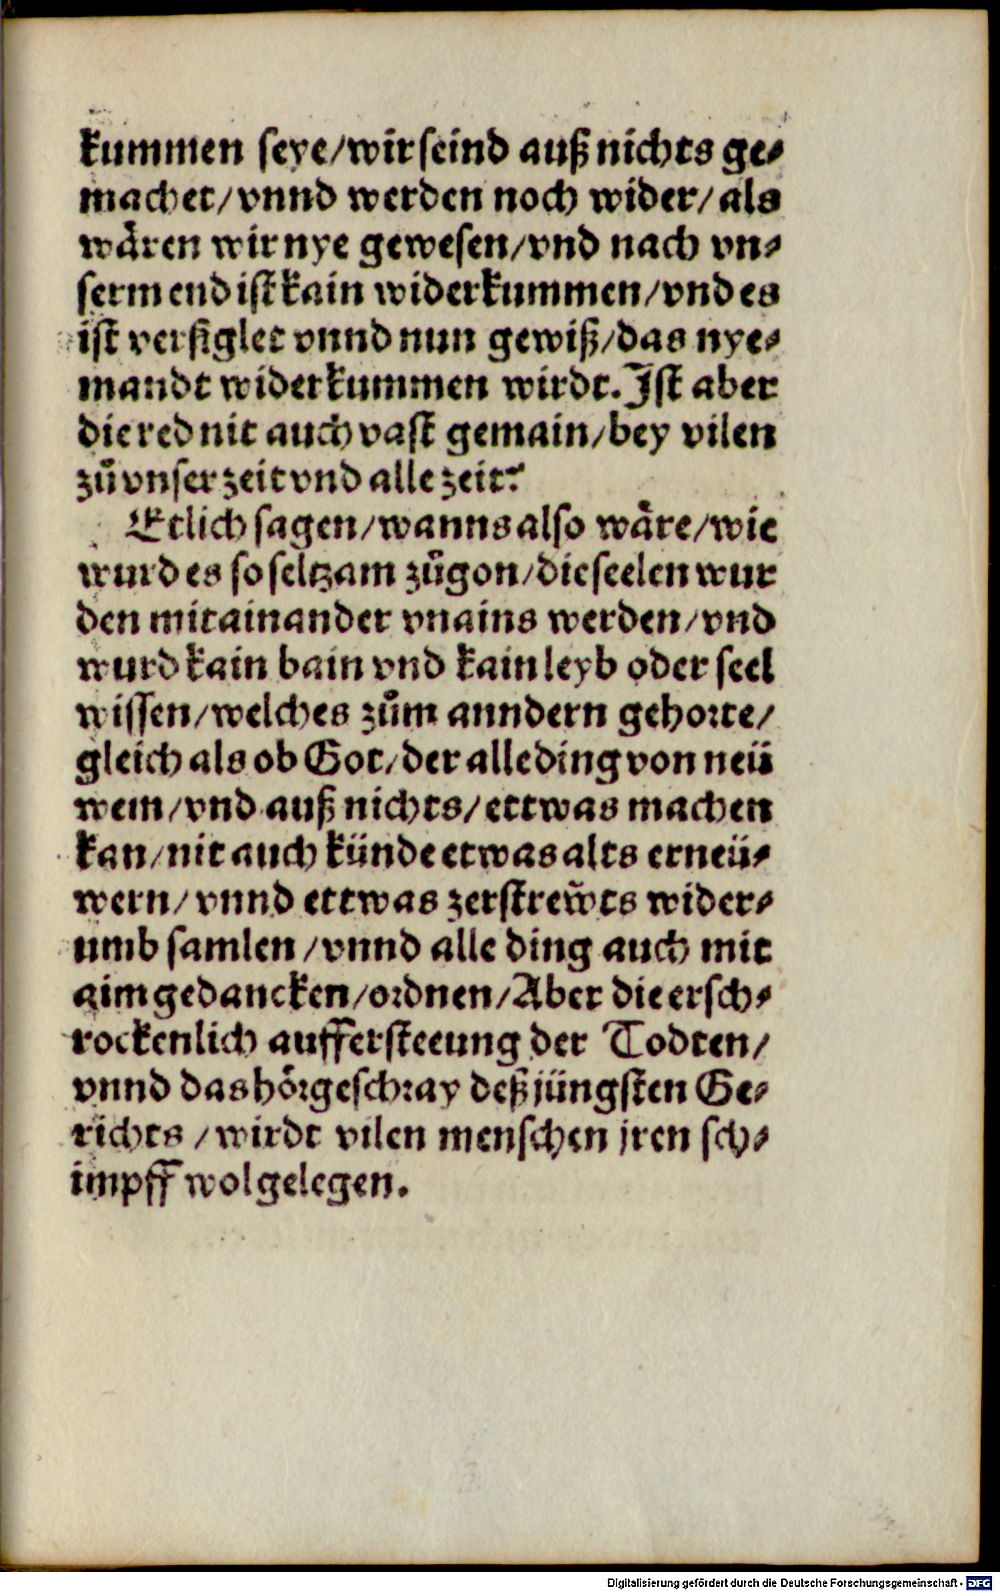 kummen seye/wir seind auß nichts ge⸗
machet/vnnd werden noch wider/als
wären wir nye gewesen/vnd nach vn⸗
serm end ist kain widerkummen/vnd es
ist versiglet vnnd nun gewiß/das nye⸗
mandt widerkummen wirdt. Ist aber
die red nit auch vast gemain/bey vilen
zů vnser zeit vnd alle zeit?
Etlich sagen/wanns also wäre/wie
wurd es so seltzam zůgon/die seelen wur
den mit ainander vnains werden/vnd
wurd kain bain vnd kain leyb oder seel
wissen/welches zům anndern gehorte/
gleich als ob Got/der alle ding von neü
wem/vnd auß nichts/ettwas machen
kan/nit auch künde etwas alts erneü⸗
wern/vnnd ettwas zerstrewts wider⸗
umb samlen/vnnd alle ding auch mit
aim gedancken/ordnen/Aber die ersch⸗
rockenlich auffersteeung der Todten/
vnnd das hörgeschray deß jüngsten Ge⸗
richts/wirdt vilen menschen jren sch⸗
impff wol gelegen.
Digitalisierung gefördert durch die Deutsche Forschungsgemeinschaft - DFG